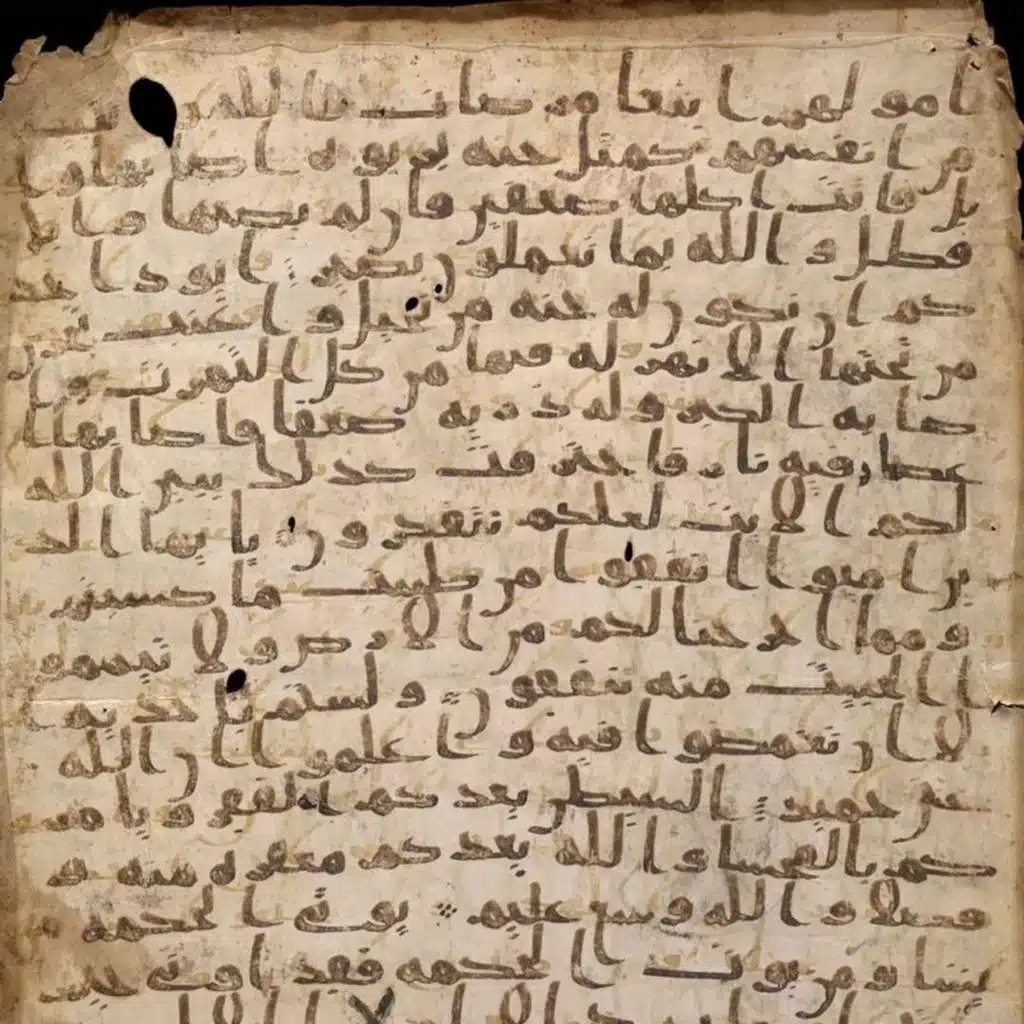 امولهم ابتغا مرضات الله و
من انفسهم كمثل جنة بربوة اصابها وا
بل فاتت اكلها ضعفين فان لم يصبها وابل
فطل والله بما تعملون بصير ايود احد
كم ان تكون له جنة من نخيل واعنب تجر
من تحتها الانهر له فيها من كل الثمرت وا
صابه الكبر وله ذرية ضعفا فاصابها ا
عصار فيه نار فاحترقت كذلك يبين الله
لكم الايت لعلكم تتفكرون يايها الذ
ين امنوا انفقوا من طيبت ما كسبتم
ومما اخرجنا لكم من الارض ولا تيمموا
الخبيث منه تنفقون ولستم باخذيه ا
لا ان تغمضوا فيه واعلموا ان الله
غني حميد الشيطن يعدكم الفقر ويامر
كم بالفحشا والله يعدكم مغفرة منه و
فضلا والله وسع عليم يوتي الحكمة من
يشا ومن يوت الحكمة فقد اوتي خير